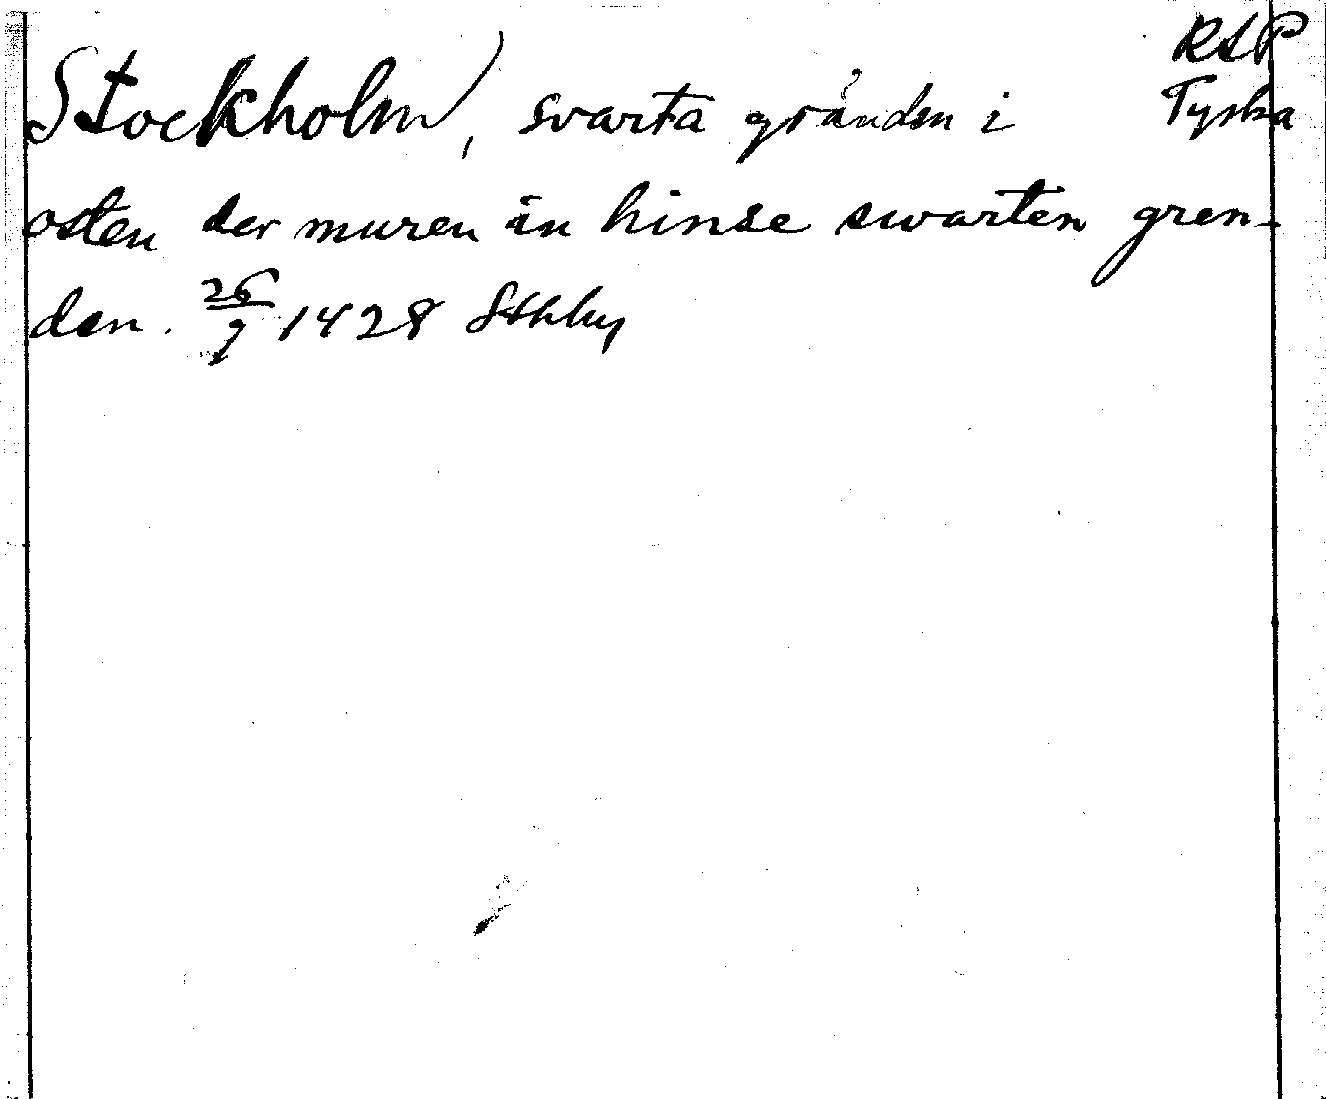 RSP
Stockholm, svarta gränden i Tyska
osten der muren än hinse swarten gren-
den. 26/9 1428